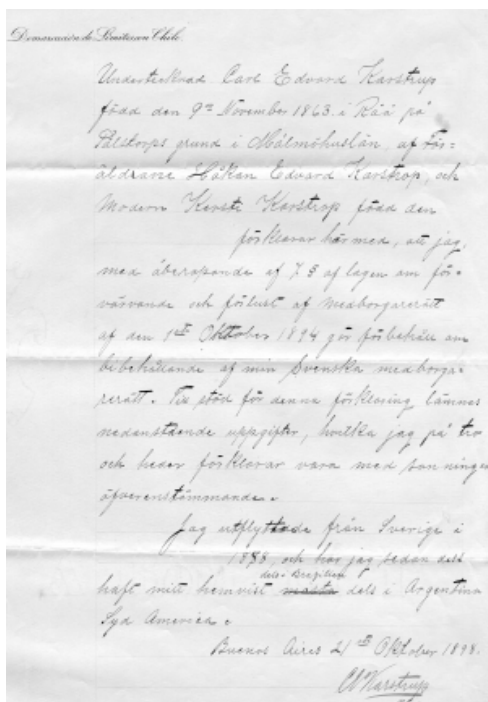 Demarcación de Límites con Chile.
Undertecknad Carl Edvard Karstrup
född den 9de November 1863 i Råå på
Pålstorps grund i Malmöhuslän, af För=
äldrarne Håkan Edvard Karstrop, och
Modern Kersti Karstrop född den
förklarar härmed, att jag,
med åberopande af 7 § af lagen om för=
värvande och förlust af medborgarerätt
af den 1sta Oktober 1894 gör förbehåll om
bibehållande af min Svenska medborga=
rerätt. Till stöd för denna förklaring lämnas
nedanstående uppgifter, hvilka jag på tro
och heder förklarar vara med sanningen
öfverensstämmande.
Jag utflyttade från Sverige i
1888, och har jag sedan dels
dels i Brazilien
haft mitt hemvist dels i Argentina
Syd America.
Buenos Aires 21 Oktober 1898.
CEKarstrup